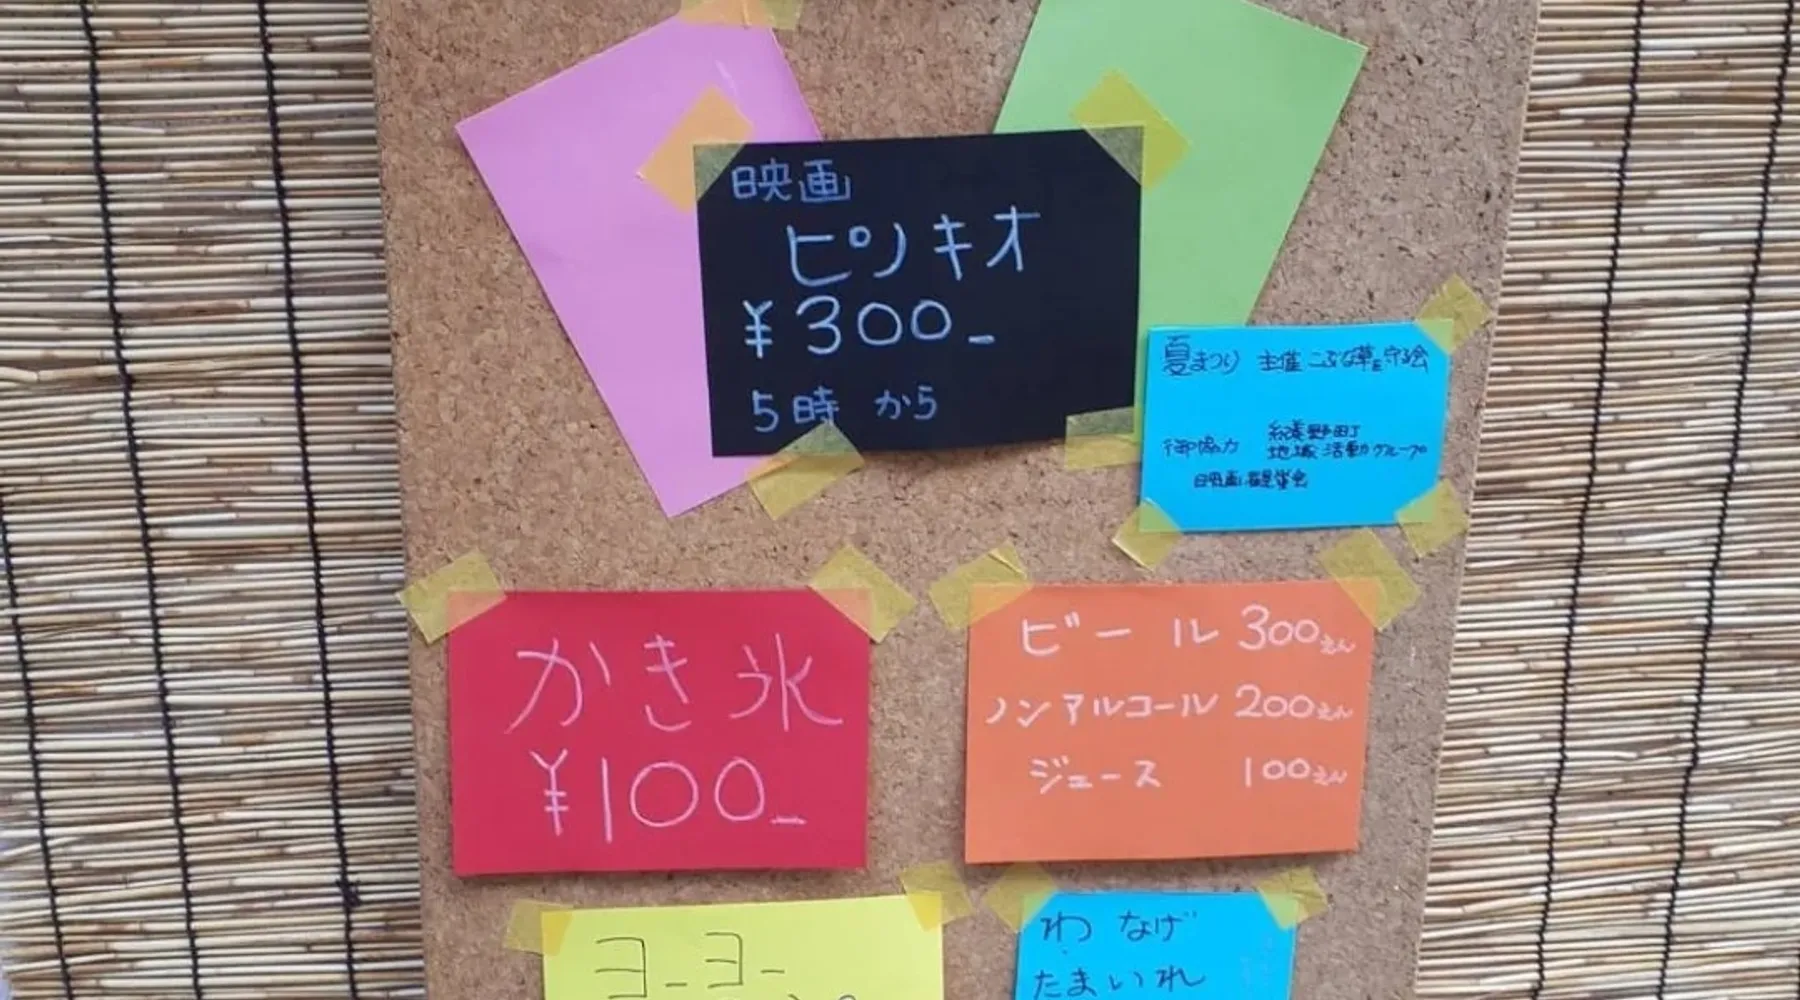 映画
ピノキオ
¥300-
5時から
夏まつり 主催 こぶな草を守る会
御協力
綾野町
地域活動グループ
映画鑑賞会
かき氷
¥100-
ビール 300えん
ノンアルコール 200えん
ジュース 100えん
ヨーヨー
わなげ
たまいれ